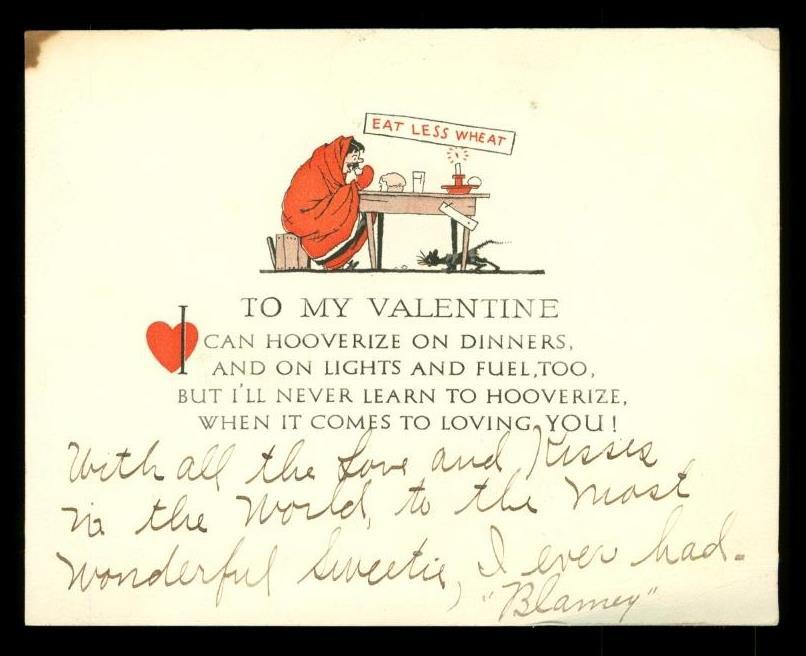 EAT LESS WHEAT
TO MY VALENTINE
I CAN HOOVERIZE ON DINNERS,
AND ON LIGHTS AND FUEL, TOO,
BUT I'LL NEVER LEARN TO HOOVERIZE,
WHEN IT COMES TO LOVING YOU!
With all the Love and Kisses
in the World, to the most
wonderful Sweetie, I ever had.
"Blarney"